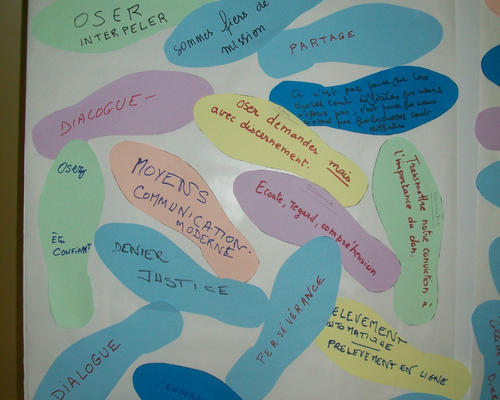 OSER
INTERPELER
sommes fiers de
mission
PARTAGE
Ce n'est pas parce que les
choses sont difficiles que nous
n'osons pas, c'est parce que nous
n'osons pas que les choses sont
difficiles
DIALOGUE -
Oser demander mais
avec discernement.
Osez
ÊE
CONFIANT
MOYENS
COMMUNICATION.
MODERNE
Ecoute, regard, compréhension
Transmettre notre conviction à
l'importance du don.
DENIER
JUSTICE
PERSÉVÉRANCE
ELEVEMENT
TOMATIQUE
PRELEVEMENT EN LIGNE
DIALOGUE